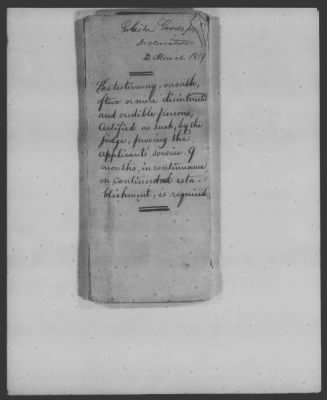 Elisha Goodrich
Declaration
2 March 1819
The testimony, on oath,
of two or more disinterested
and credible persons,
Certified as such, by the
Judge, proving the
applicants' service 9
months, in continuance
on Continental esta-
blishment, is required